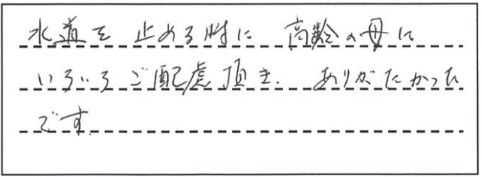 水道を止める時に 高齢の母に
いろいろご配慮頂き、ありがたかった
です。